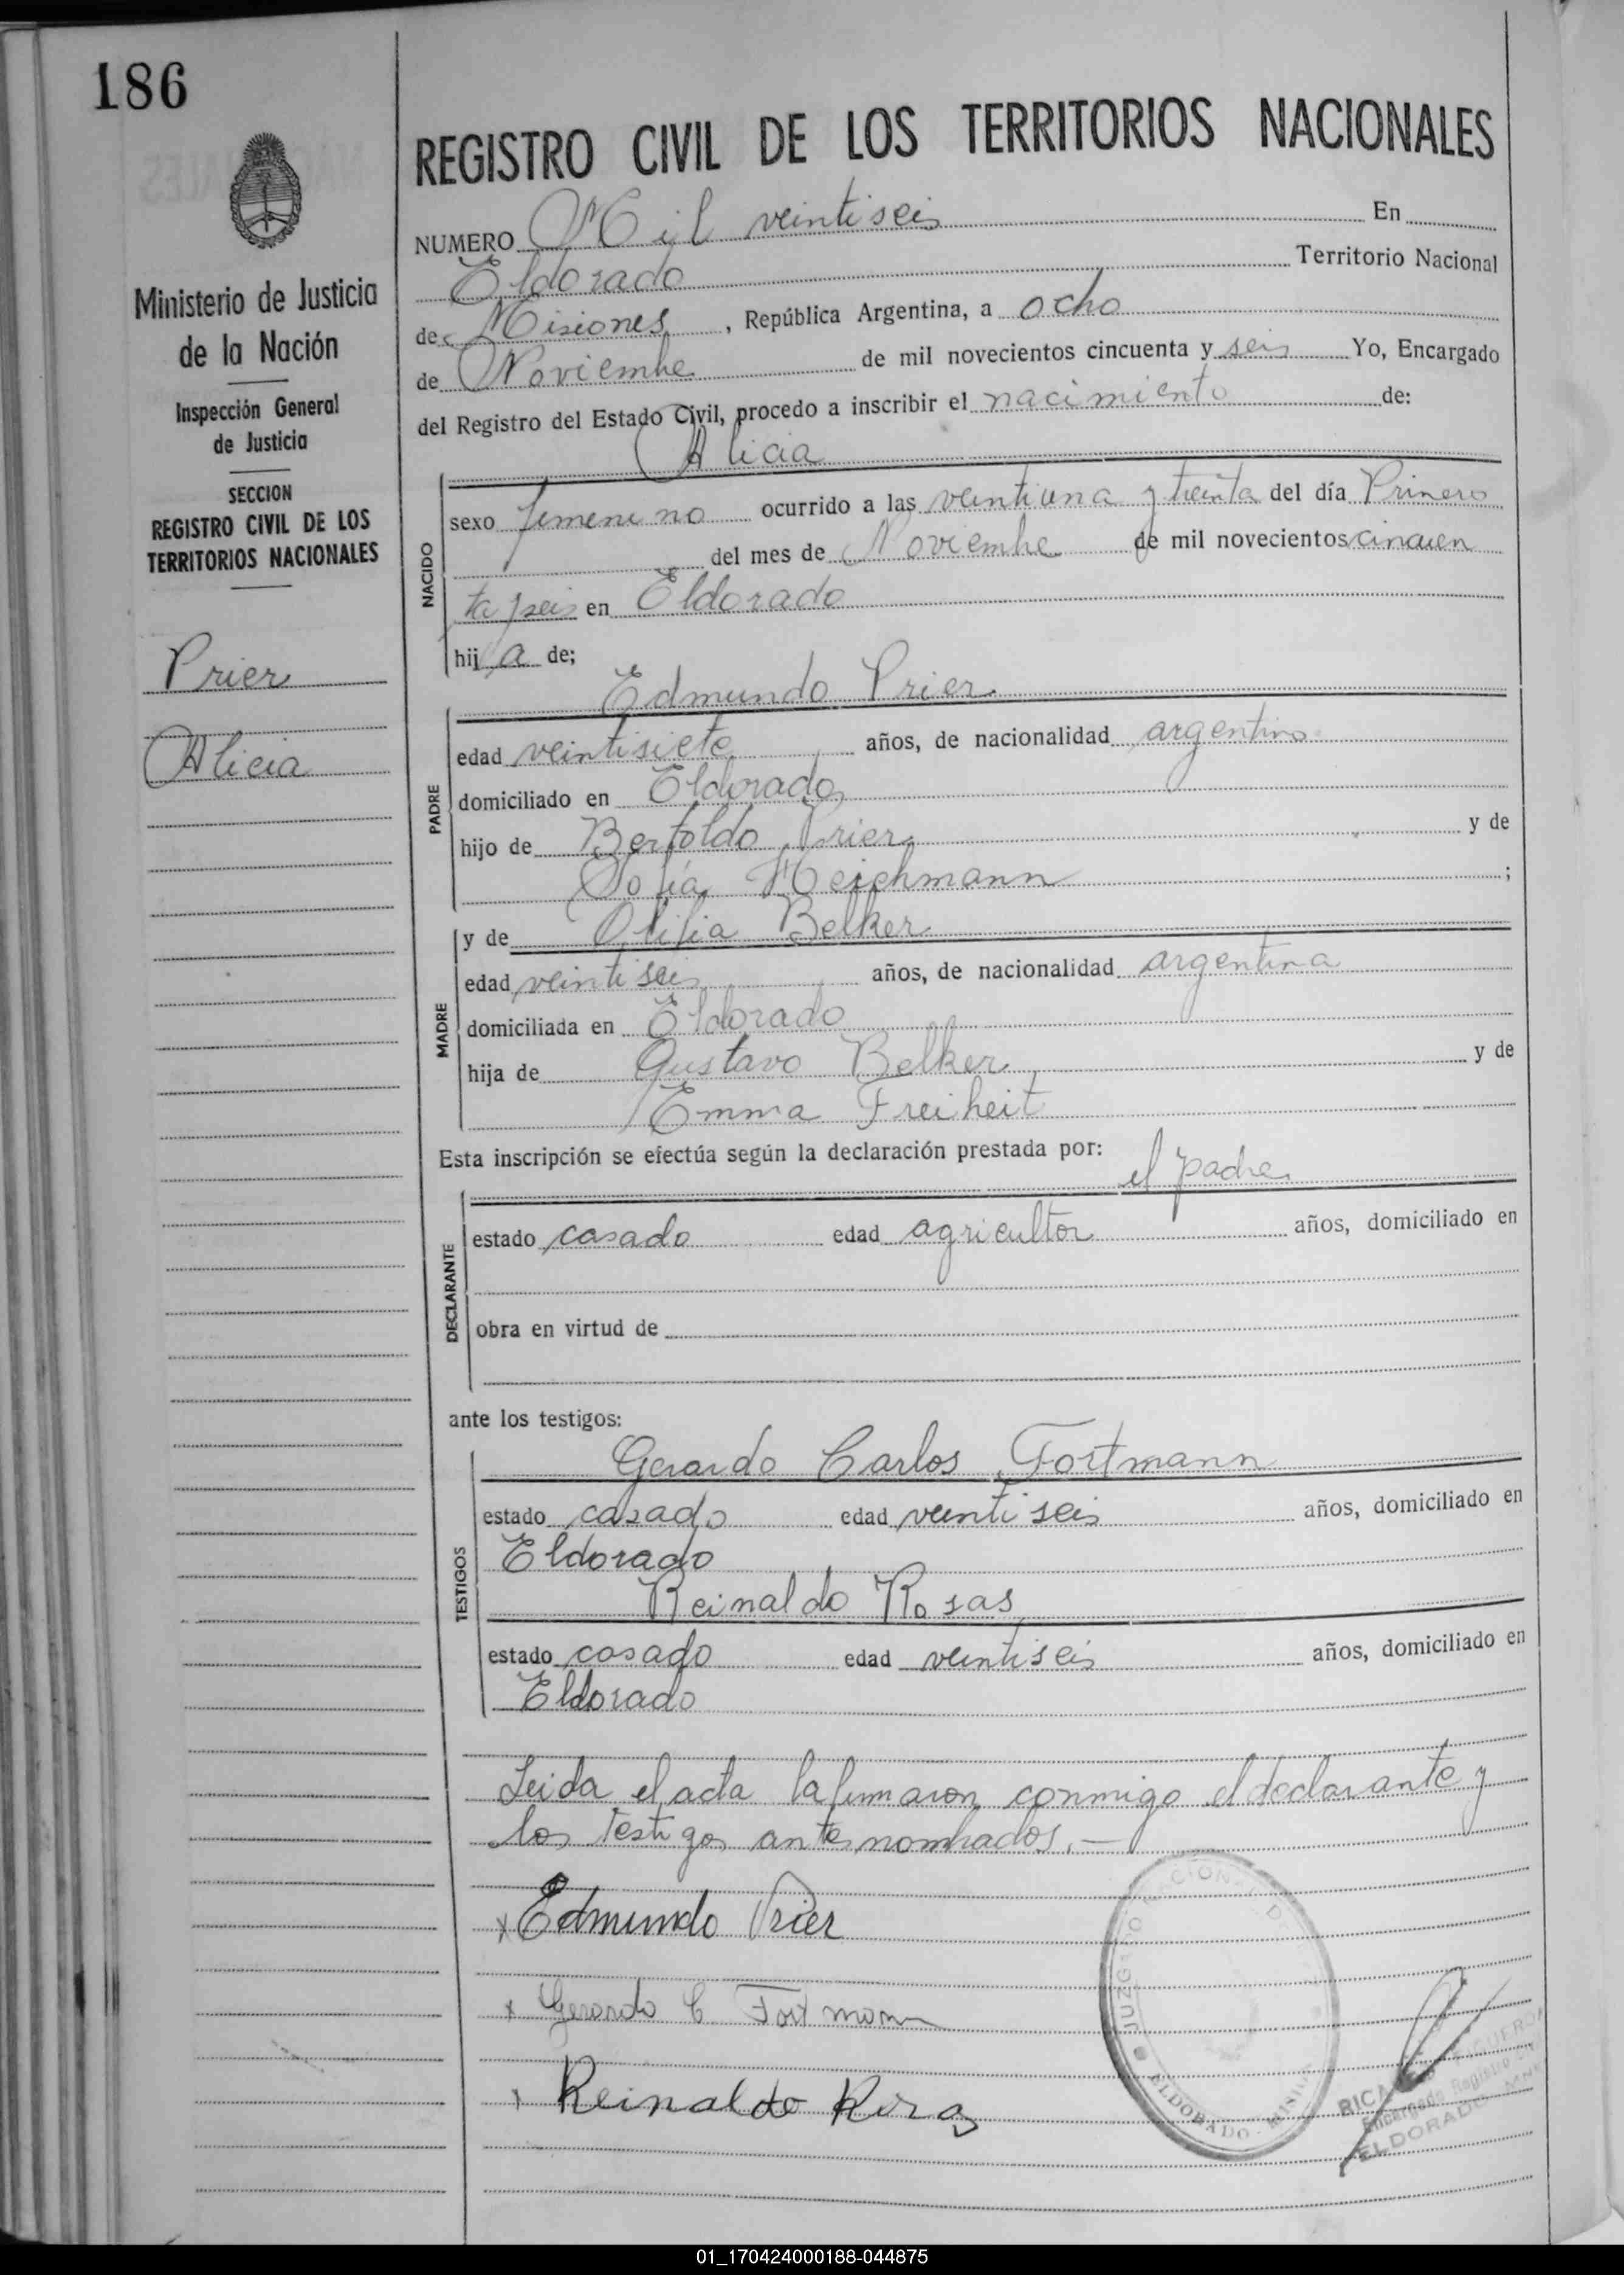 186
REGISTRO CIVIL DE LOS TERRITORIOS NACIONALES
NUMERO Mil veintiseis En
Eldorado Territorio Nacional
de Misiones, República Argentina, a ocho
de Noviembre de mil novecientos cincuenta y seis Yo, Encargado
del Registro del Estado Civil, procedo a inscribir el nacimiento de:
Alicia
Ministerio de Justicia
de la Nación
Inspección General
de Justicia
SECCION
REGISTRO CIVIL DE LOS
TERRITORIOS NACIONALES
Prier
Alicia
NACIDO
sexo femenino ocurrido a las veintiuna y treinta del día Primero
del mes de Noviembre de mil novecientos cincuen
ta y seis en Eldorado
hij a de;
Edmundo Prier
PADRE
edad veintisiete años, de nacionalidad argentino
domiciliado en Eldorado
hijo de Bertoldo Prier y de
Sofia ;
y de Belker
MADRE
edad veintiseis años, de nacionalidad argentina
domiciliada en Eldorado
hija de Gustavo Belker y de
Emma Freiheit
Esta inscripción se efectúa según la declaración prestada por:
el padre
DECLARANTE
estado casado edad agricultor años, domiciliado en
obra en virtud de
ante los testigos:
Gerardo Carlos Fortmann
TESTIGOS
estado casado edad veintiseis años, domiciliado en
Eldorado
Reinaldo Rosas
estado casado edad veintiseis años, domiciliado en
Eldorado
Leida el acta la firmaron conmigo el declarante y
los testigos antes nombrados.—
x Edmundo Prier
x Gerardo C Fortmann
x Reinaldo
JUZGADO
ELDORADO
Encargado Registro
ELDORADO
01_170424000188-044875